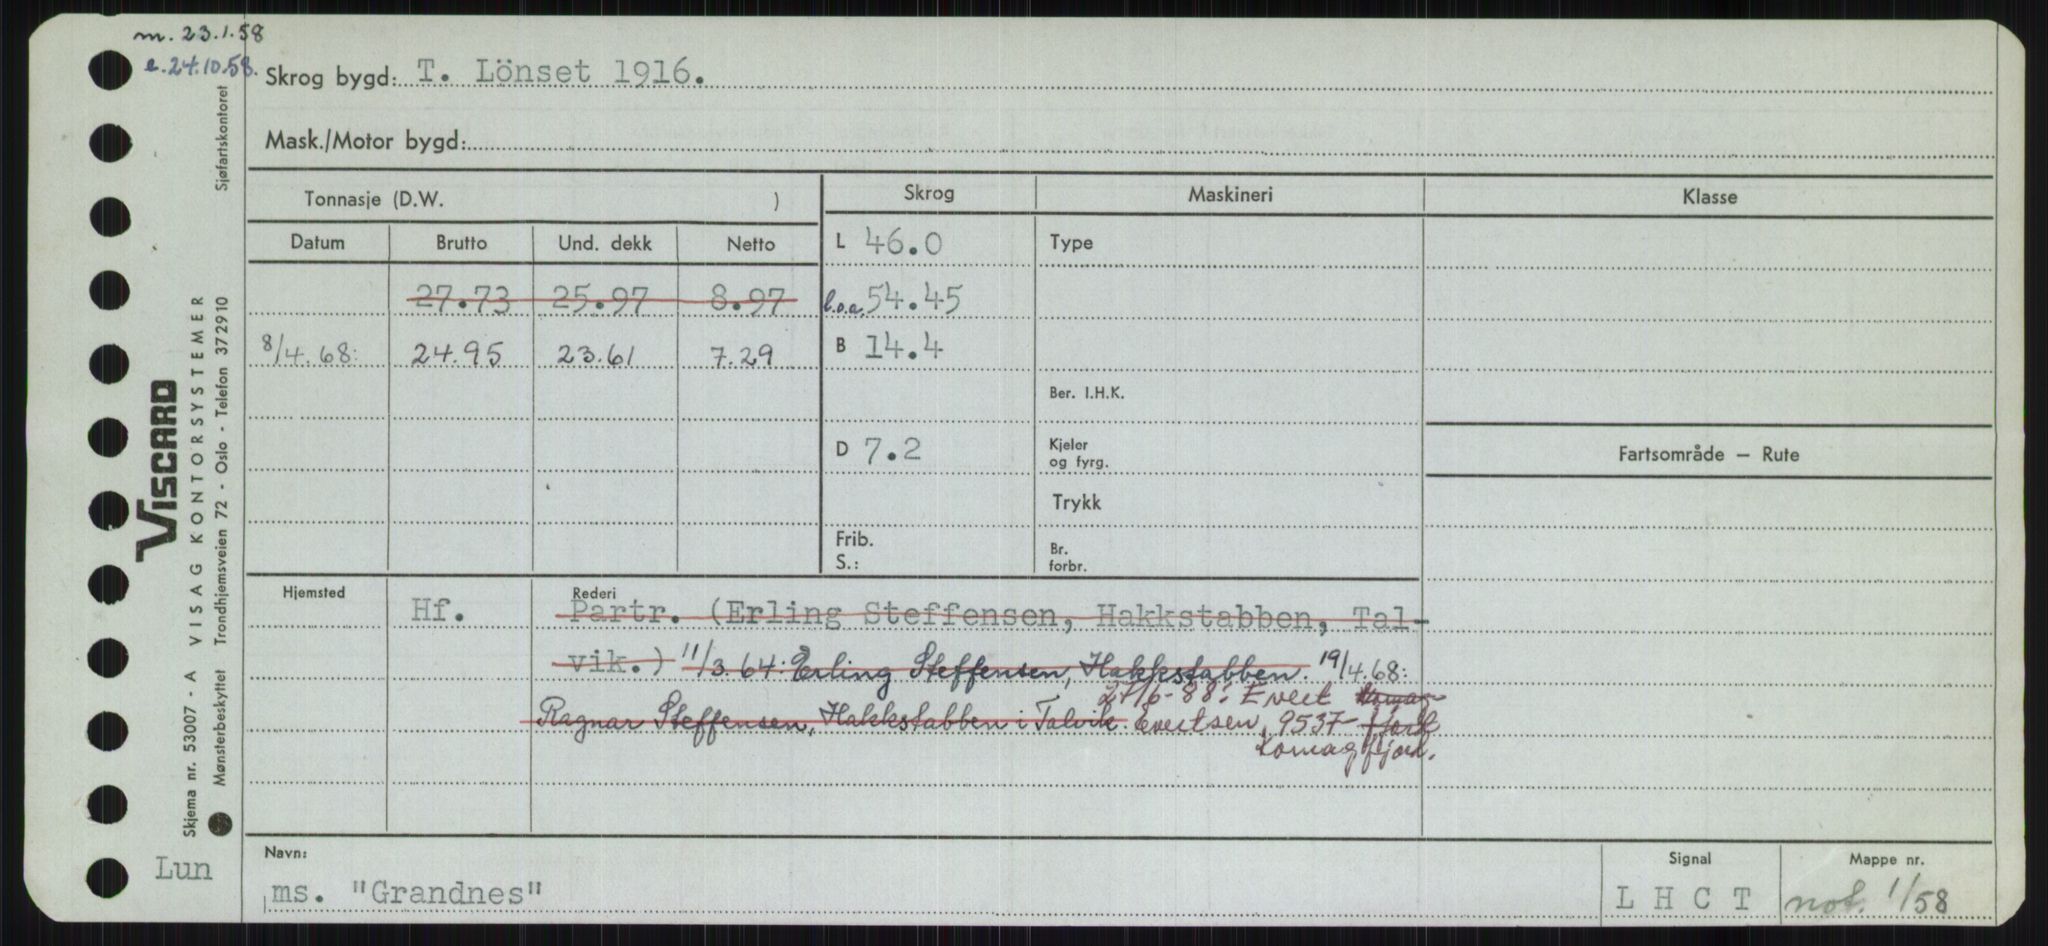 m. 23.1.58
e. 24.10.58.
Skrog bygd: T. Lönset 1916.
Mask./Motor bygd:
Tonnasje (D.W. )
Skrog
Maskineri
Klasse
Datum
Brutto
Und. dekk
Netto
L 46.0
Type
27.73 25.97 8.97
l.o.a. 54.45
8/4.68: 24.95 23.61 7.29
B 14.4
Ber. I.H.K.
D 7.2
Kjeler
og fyrg.
Fartsområde — Rute
Trykk
Frib.
S.:
Br.
forbr.
Hjemsted
Rederi
Hf. Partr. (Erling Steffensen, Hakkstabben, Tal-
vik.) 11/3.64: Erling Steffensen, Hakkstabben. 19/4.68:
27/6-88: Evert Komag
Ragnar Steffensen, Hakkstabben i Talvik. Evertsen, 9537- fjord
Komagfjord.
Navn:
Signal
Mappe nr.
Lun
ms. "Grandnes"
L H C T
not. 1/58
Sjøfartskontoret
VISCARD
VISAG KONTORSYSTEMER
Trondhjemsveien 72 - Oslo - Telefon 372910
Skjema nr. 53007 - A
Mønsterbeskyttet